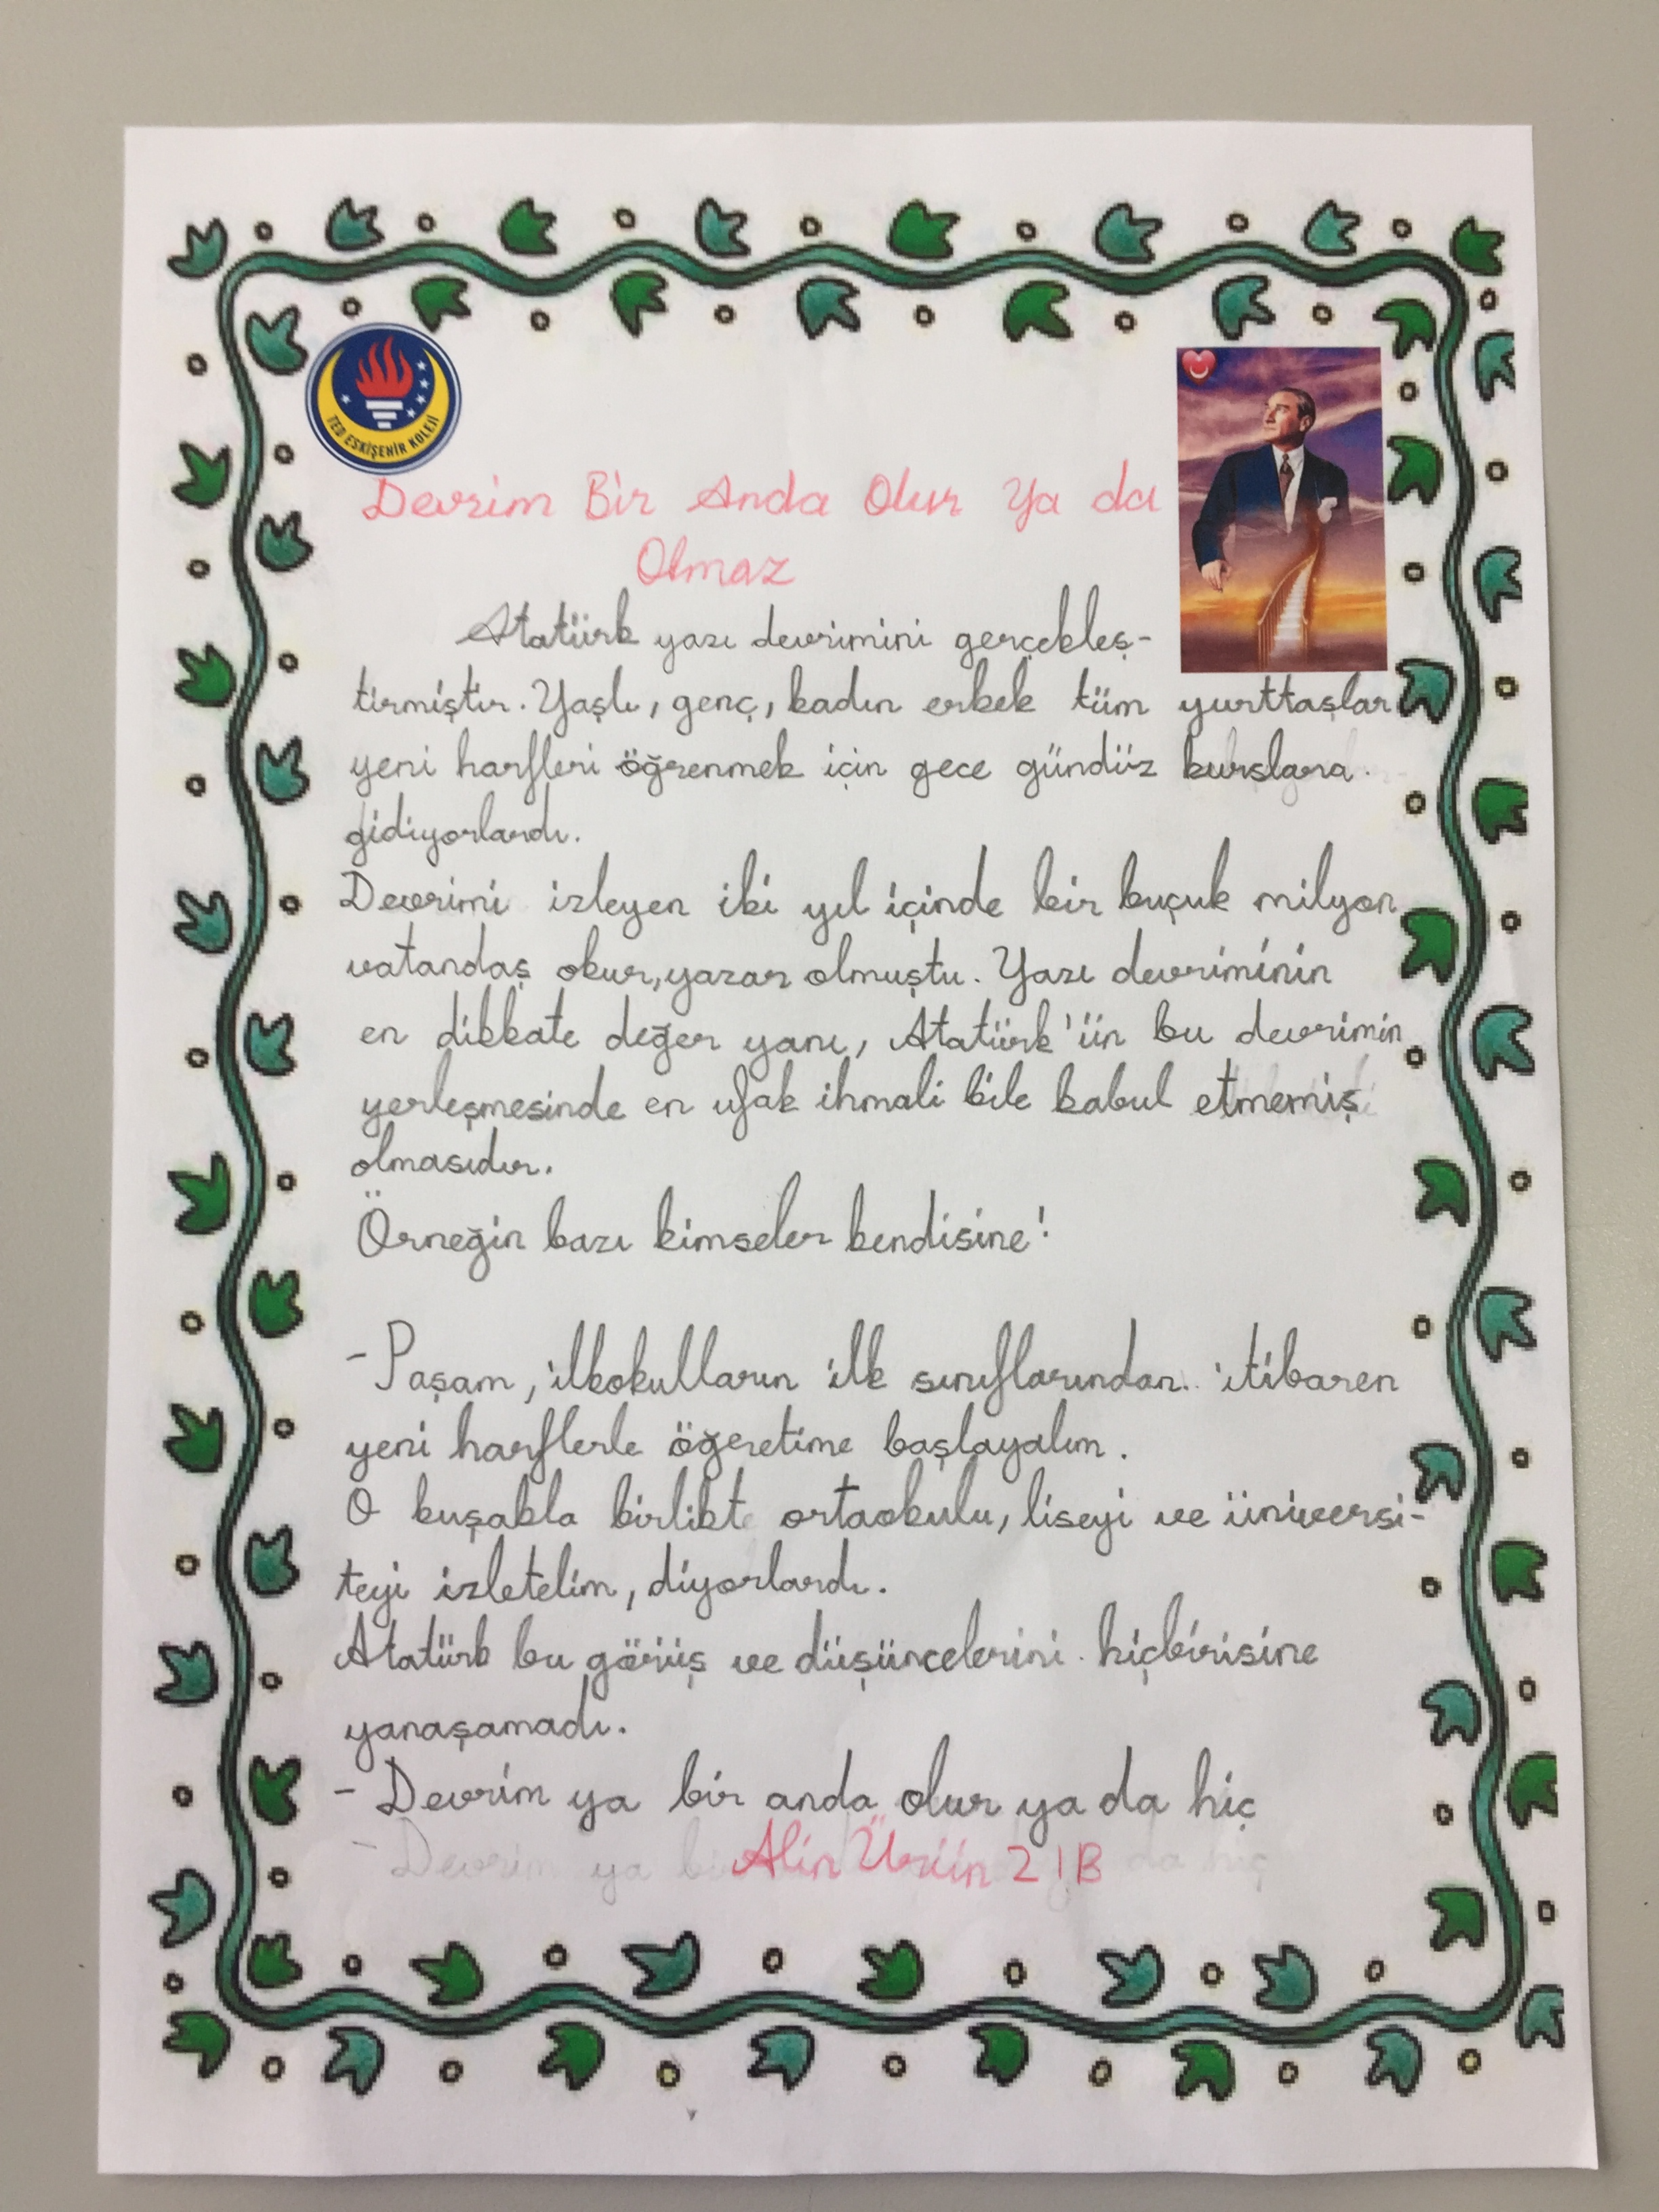 TED ESKİŞEHİR KOLEJİ
Devrim Bir Anda Olur Ya da
Olmaz
Atatürk yazı devrimini gerçekleş-
tirmiştir. Yaşlı, genç, kadın erkek tüm yurttaşlar
yeni harfleri öğrenmek için gece gündüz kurslara
gidiyorlardı.
Devrimi izleyen iki yıl içinde bir buçuk milyon
vatandaş okur, yazar olmuştu. Yazı devriminin
en dikkate değer yanı, Atatürk'ün bu devrimin
yerleşmesinde en ufak ihmali bile kabul etmemiş
olmasıdır.
Örneğin bazı kimseler kendisine:
-Paşam, ilkokulların ilk sınıflarından itibaren
yeni harflerle öğeretime başlayalım.
O kuşakla birlikte ortaokulu, liseyi ve üniversi-
teyi izletelim, diyorlardı.
Atatürk bu görüş ve düşüncelerini hiçbirisine
yanaşamadı.
- Devrim ya bir anda olur ya da hiç
Alin Ürün 2/B